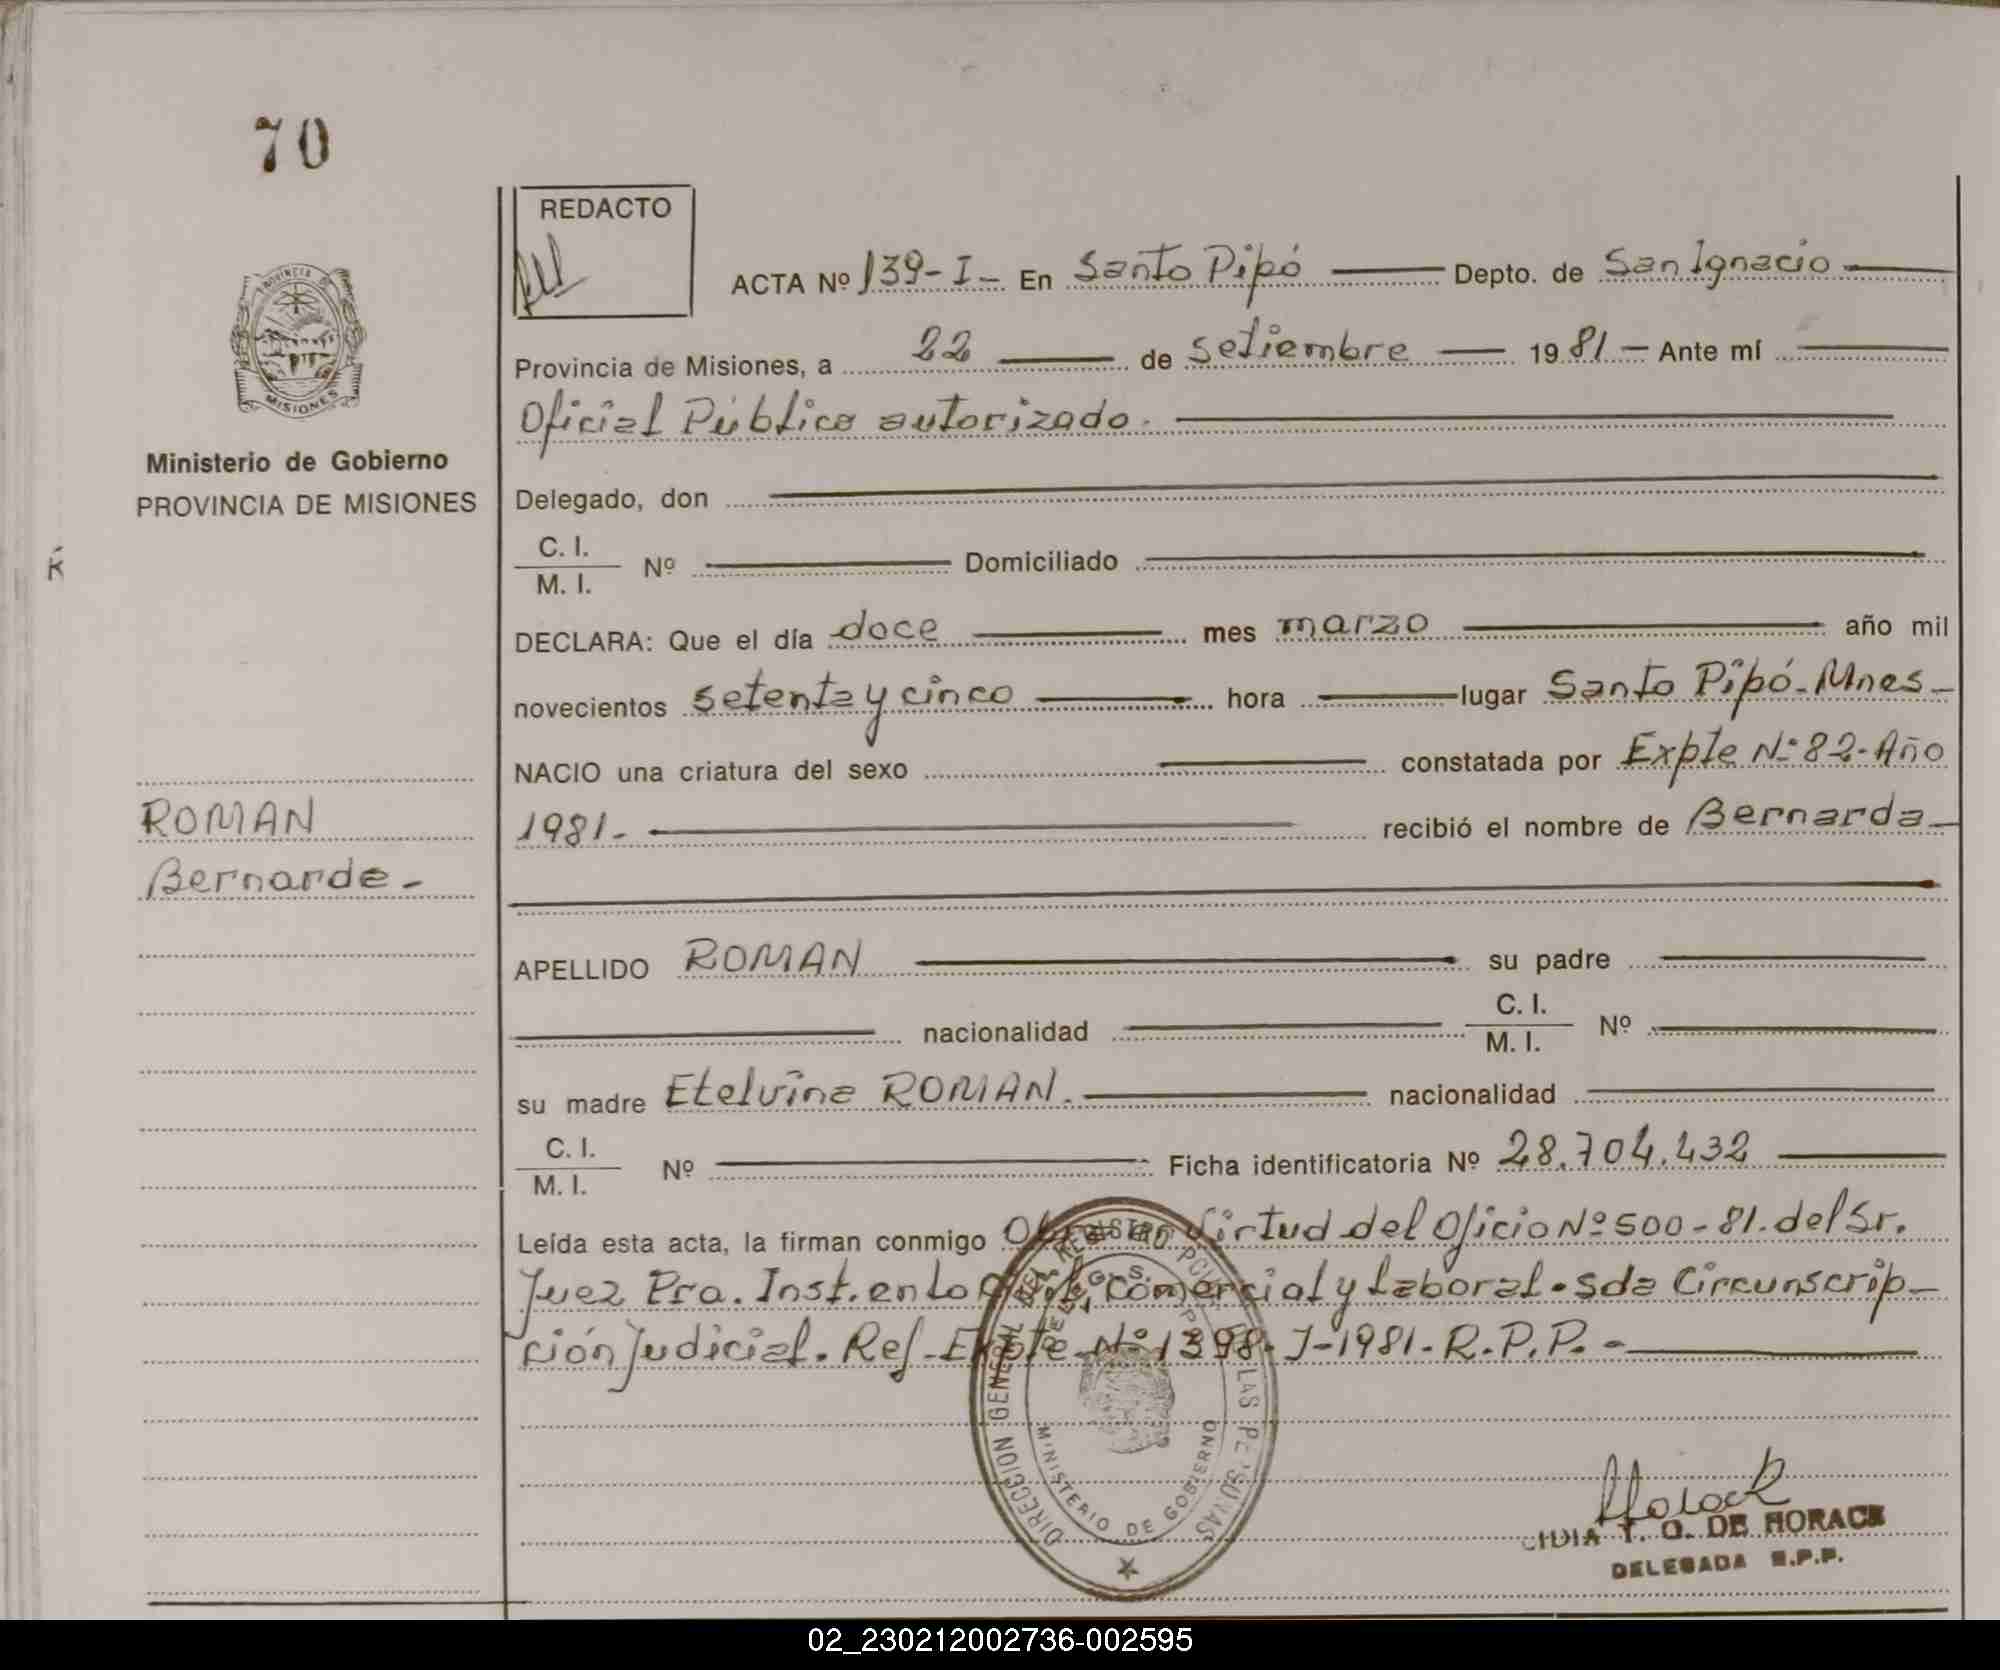 70
REDACTO
ACTA Nº 139-I- En Santo Pipó Depto. de San Ignacio
Provincia de Misiones, a 22 de Setiembre 1981 - Ante mí
Oficial Público autorizado.
PROVINCIA DE
MISIONES
Ministerio de Gobierno
PROVINCIA DE MISIONES
Delegado, don
C. I.
M. I. Nº Domiciliado
DECLARA: Que el día doce mes marzo año mil
novecientos setenta y cinco hora lugar Santo Pipó-Mnes-
NACIO una criatura del sexo constatada por Expte Nº 82-Año
1981- recibió el nombre de Bernarda-
ROMAN
Bernarda-
APELLIDO ROMAN su padre
nacionalidad C. I.
M. I. Nº
su madre Etelvina ROMAN. nacionalidad
C. I.
M. I. Nº Ficha identificatoria Nº 28.704.432
Leída esta acta, la firman conmigo en Virtud del Oficio Nº 500-81. del Sr.
Juez Pra. Inst. en lo Comercial y Laboral. Sda Circunscrip-
ción Judicial. Ref. Expte Nº 1398-J-1981-R.P.P.-
DIRECCION GENERAL DEL REGISTRO LAS PERSONAS
MINISTERIO DE GOBIERNO
T. O. DE HORACK
DELEGADA R.P.P.
02_230212002736-002595